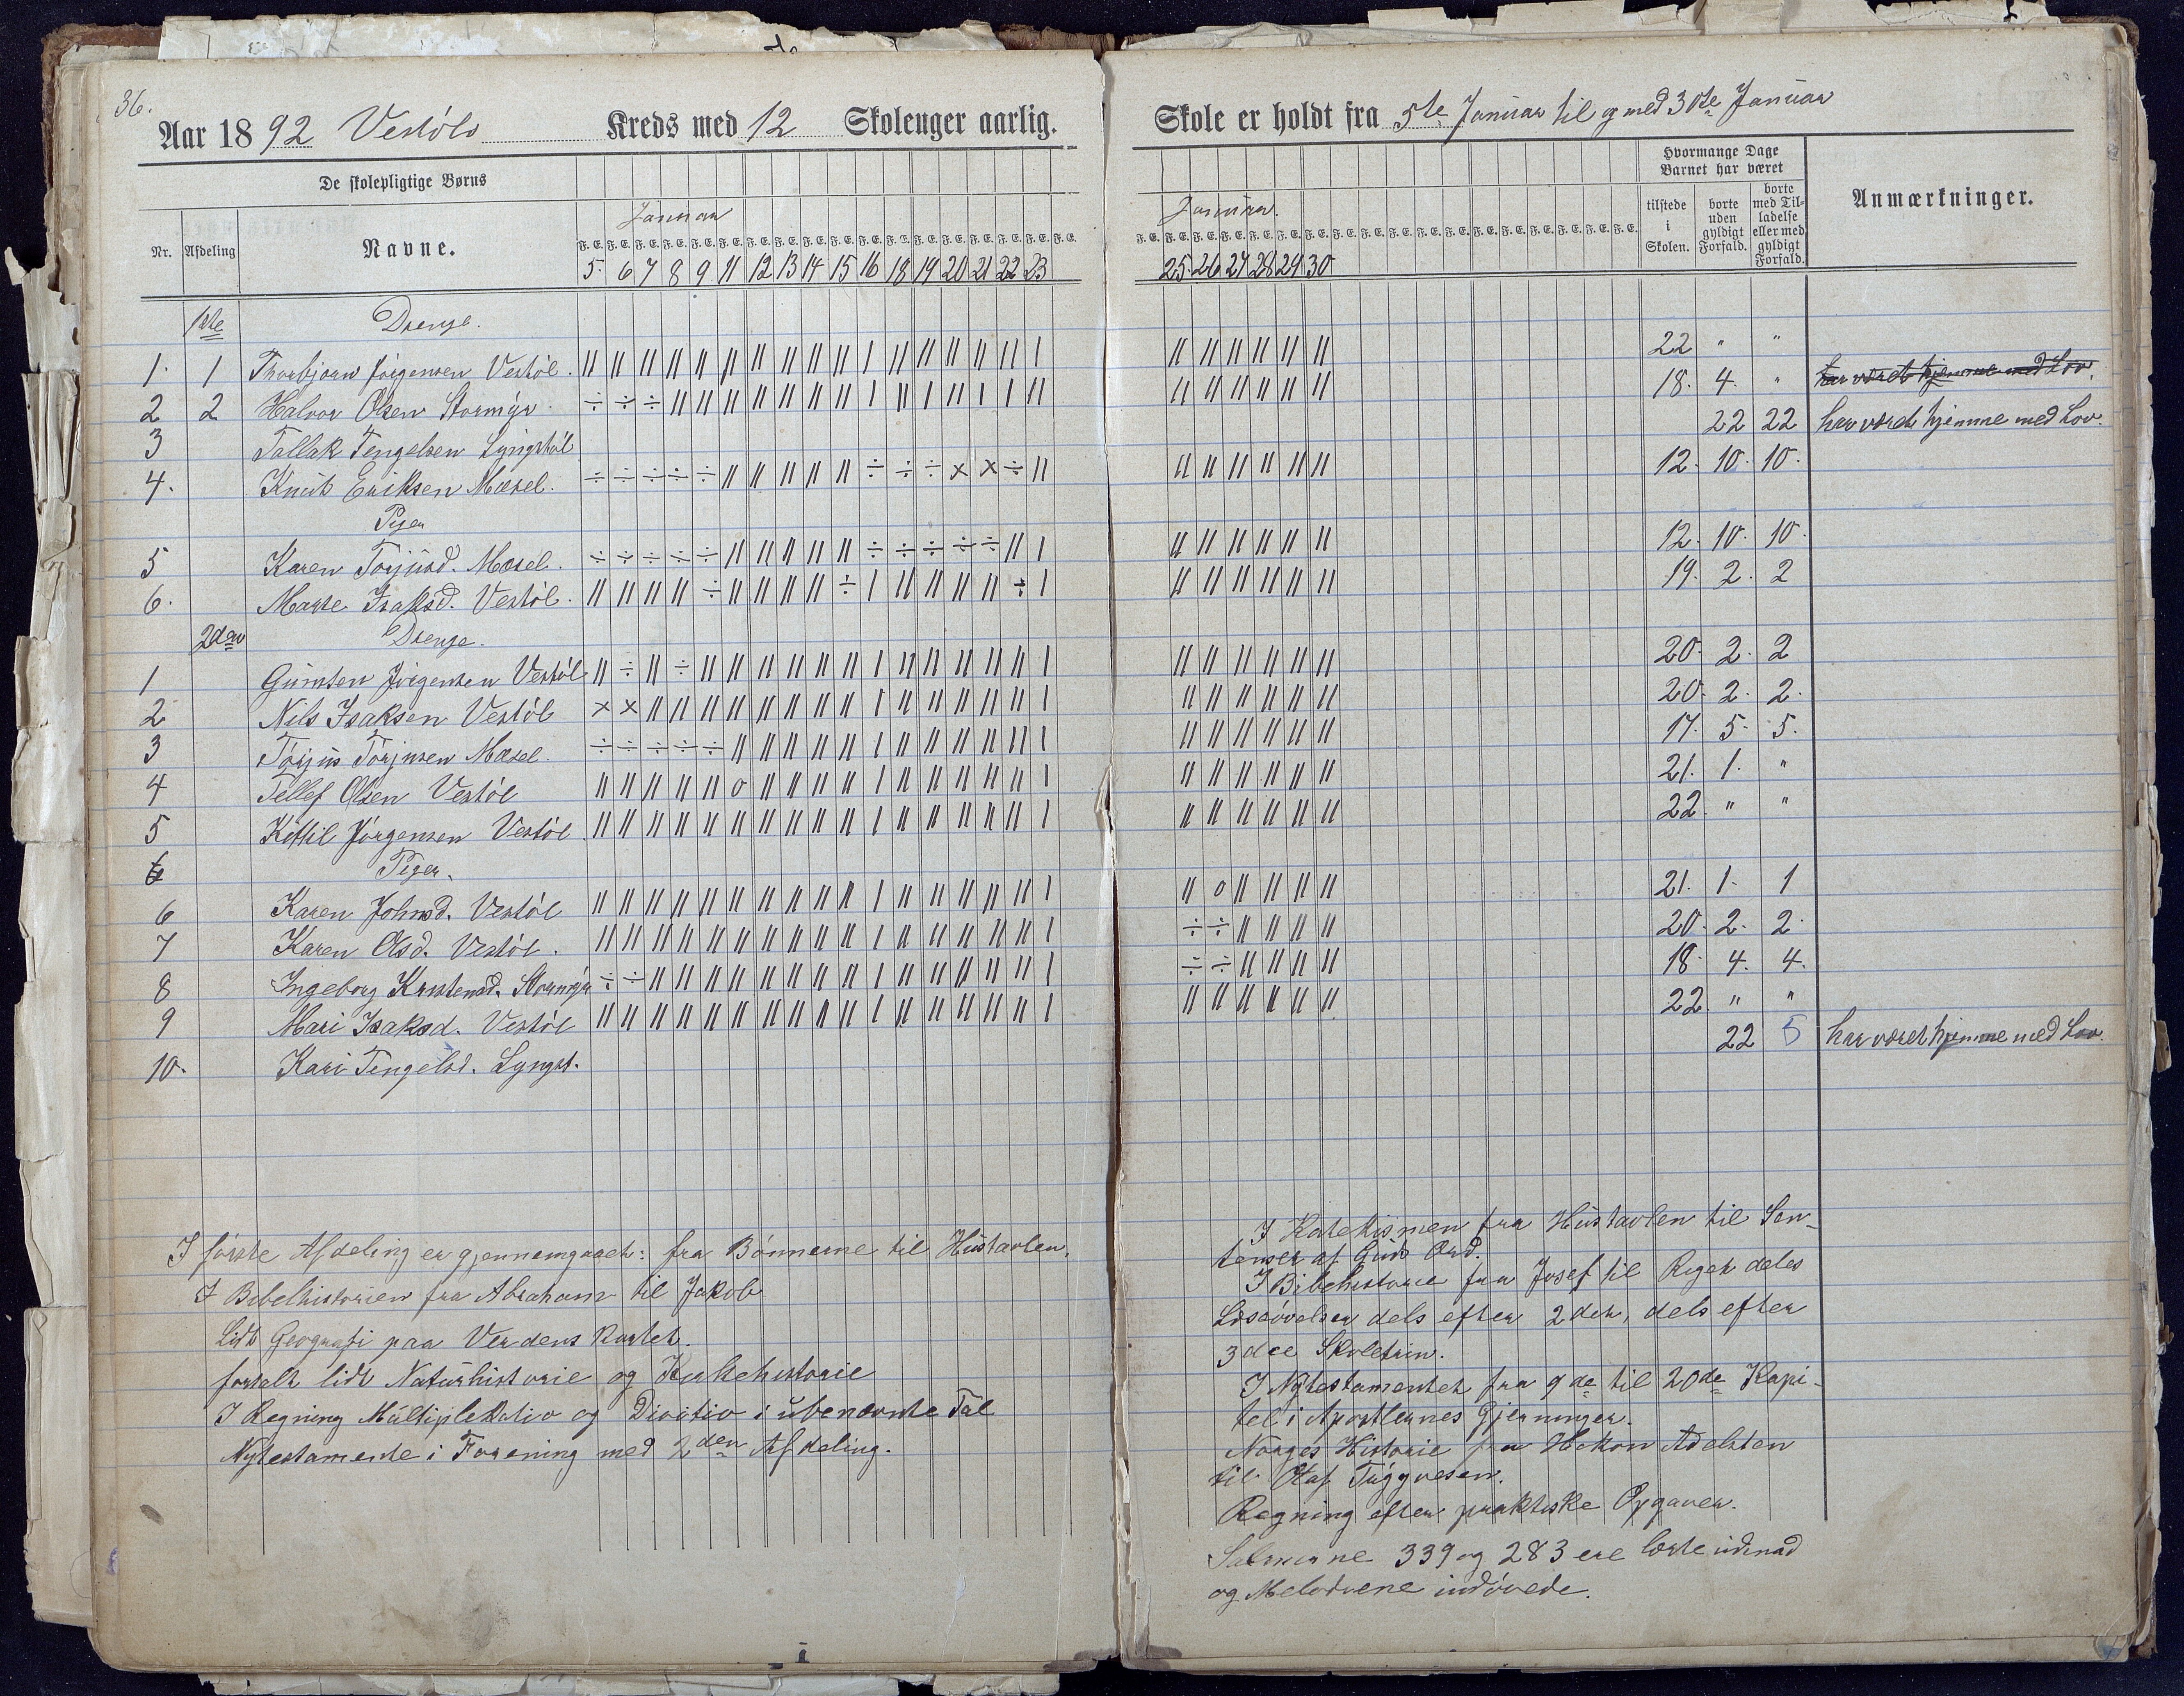 36.
Aar 1892 Vestöls Kreds med 12 Skoleuger aarlig.
De skolepligtige Børns
Januar
Nr. Afdeling Navne.
F. E. F. E. F. E. F. E. F. E. F. E. F. E. F. E. F. E. F. E. F. E. F. E. F. E. F. E. F. E. F. E. F. E. F. E.
5. 6 7 8 9 11 12 13 14 15 16 18 19 20 21 22 23
1ste Drenge.
1. 1 Thorbjorn Jörgensen Vestöl.
2 2 Halvor Olsen Stormyr.
3 Tallak Tengelsen Lyngstöl
4. Knut Eriksen Mæsel.
Piger
5 Karen Torjusd. Mæsel.
6. Marte Isaksd. Vestöl.
2den Drenge.
1 Gunsten Jörgensen Vestöl
2 Nils Isaksen Vestöl
3 Torjus Torjusen Mæsel.
4 Tellef Olsen Vestöl
5 Kittil Jörgensen Vestöl.
6 Piger.
6 Karen Johnsd. Vestöl
7 Karen Olsd. Vestöl.
8 Ingeborg Kristensd. Stormyr
9 Mari Isaksd. Vestöl
10. Kari Tengelsd. Lyngst.
I förste Afdeling er gjennemgaaet: fra Bönnerne til Hustavlen.
I Bibelhistorien fra Abraham til Jakob
Lidt Geografi paa Verdens Kartet.
fortalt lidt Naturhistorie og Kirkehistorie
I Regning Multiplikatio og Divitio i ubenævnte Tal
Nytestamente i Forening med 2den Afdeling.
Skole er holdt fra 5te Januar til og med 30te Januar
Hvormange Dage
Barnet har været
tilstede i Skolen.
borte uden gyldigt Forfald.
borte med Tilladelse eller med gyldigt Forfald.
Anmærkninger.
Januar.
F. E. F. E. F. E. F. E. F. E. F. E. F. E. F. E. F. E. F. E. F. E. F. E. F. E. F. E. F. E. F. E. F. E. F. E.
25. 26 27 28 29 30
22 " "
18. 4. " har været hjemme med Lov.
22 22 har været hjemme med Lov.
12. 10. 10.
12. 10. 10.
19. 2. 2
20. 2. 2
20. 2. 2.
17. 5. 5.
21. 1. "
22. " "
21. 1. 1
20. 2. 2.
18. 4. 4.
22. " "
22 5 har været hjemme med Lov.
I Katekismen fra Hustavlen til Sen-
tenser af Guds Ord.
I Bibelhistorie fra Josef til Riget deles
Læseövelser dels efter 2det, dels efter
3die Skoletrin.
I Nytestamentet fra 9de til 20de Kapi-
tel i Apostlernes Gjerninger.
Norges Historie fra Hakon Adelsten
til Olaf Trygvesen.
Regning efter praktiske Opgaver.
Salmerne 339 og 283 ere lærte udenad
og Melodiene indövede.